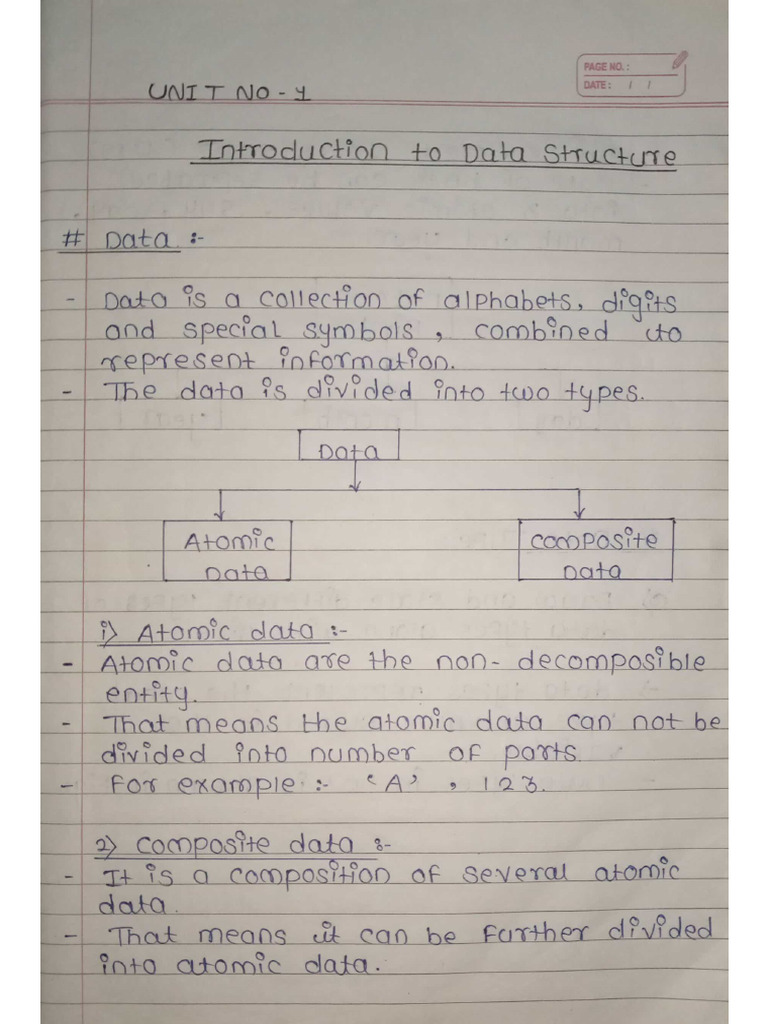 PAGE NO.:
DATE: / /
UNIT NO - 1
Introduction to Data Structure
# Data :-
- Data is a collection of alphabets, digits
and special symbols , combined to
represent information.
- The data is divided into two types.
Data
Atomic Composite
Data Data
i) Atomic data :-
- Atomic data are the non- decomposible
entity.
- That means the atomic data can not be
divided into number of parts.
- For example :- 'A' , 123.
2) Composite data :-
- It is a composition of several atomic
data.
- That means it can be further divided
into atomic data.